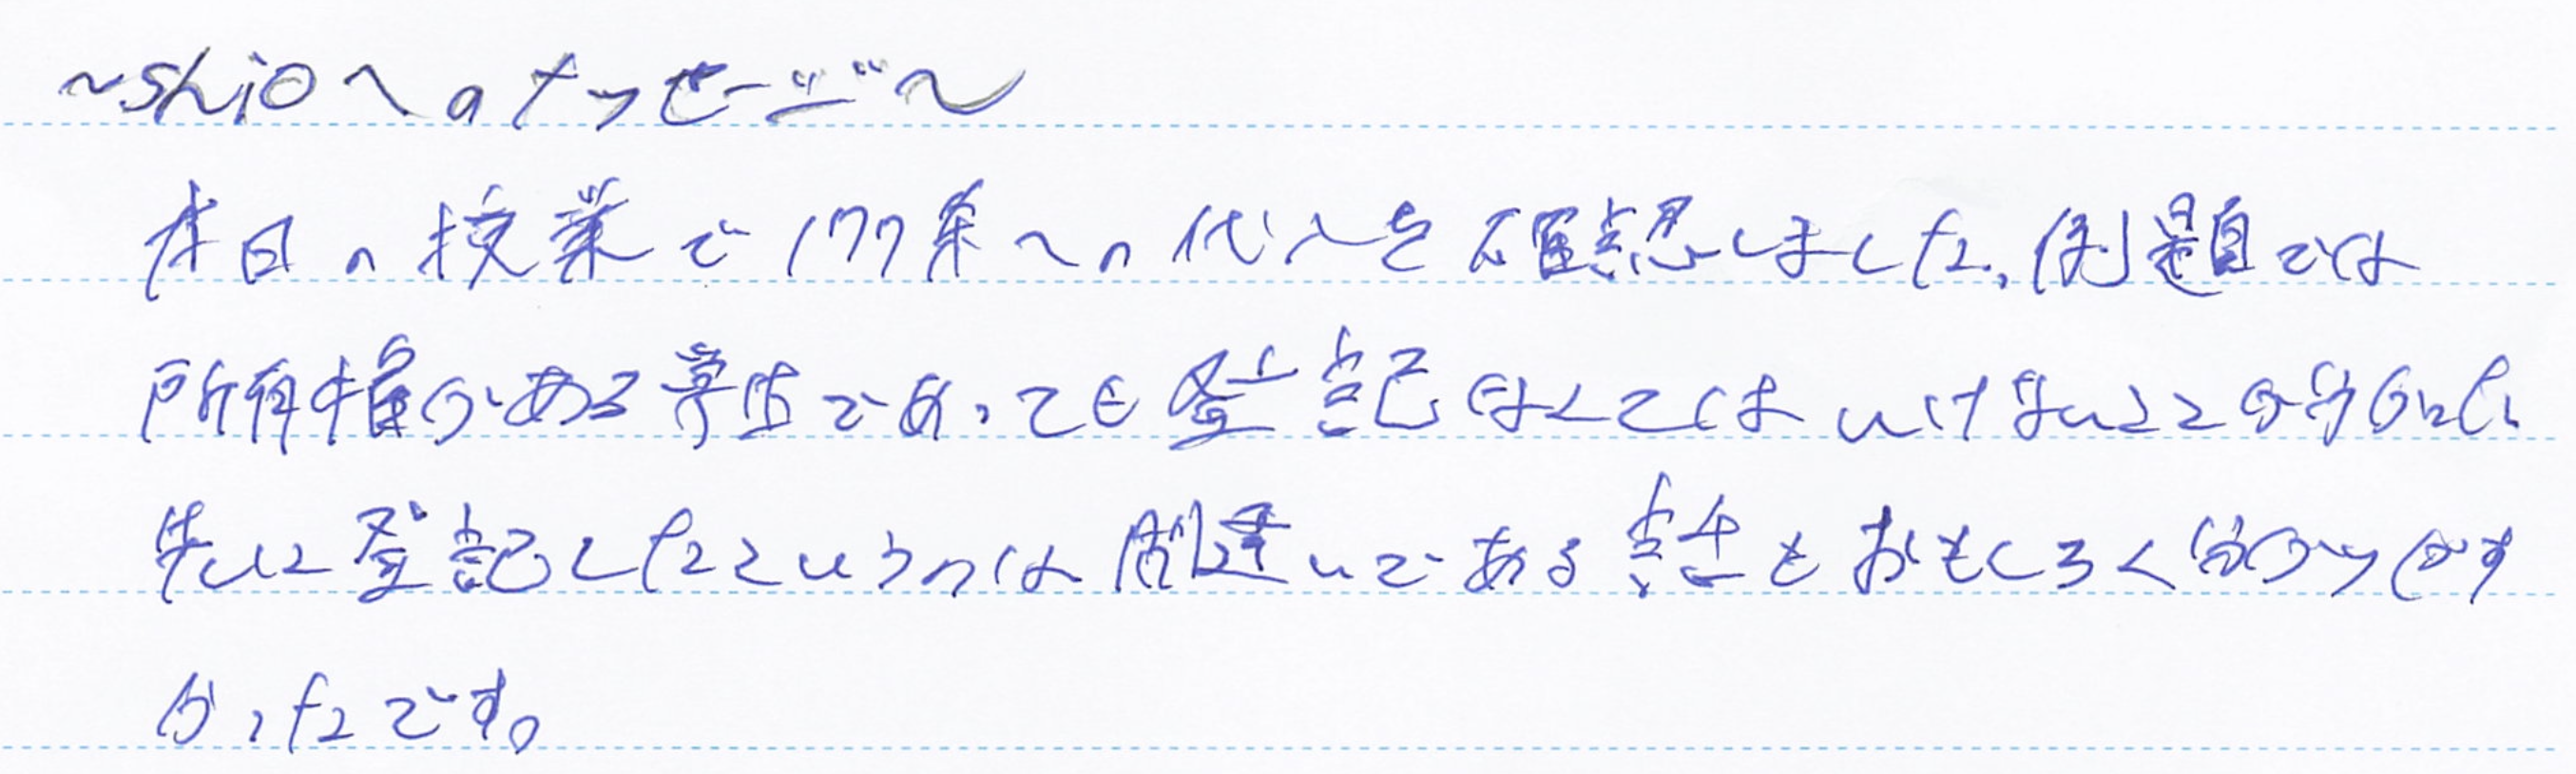 ~shioへのメッセージ~
本日の授業で177条への代入を確認しました。例題では
所有権がある学生であっても登記なくてはいけないことが分かったし、
先に登記したというのは間違いである話もおもしろく分かりやす
かったです。